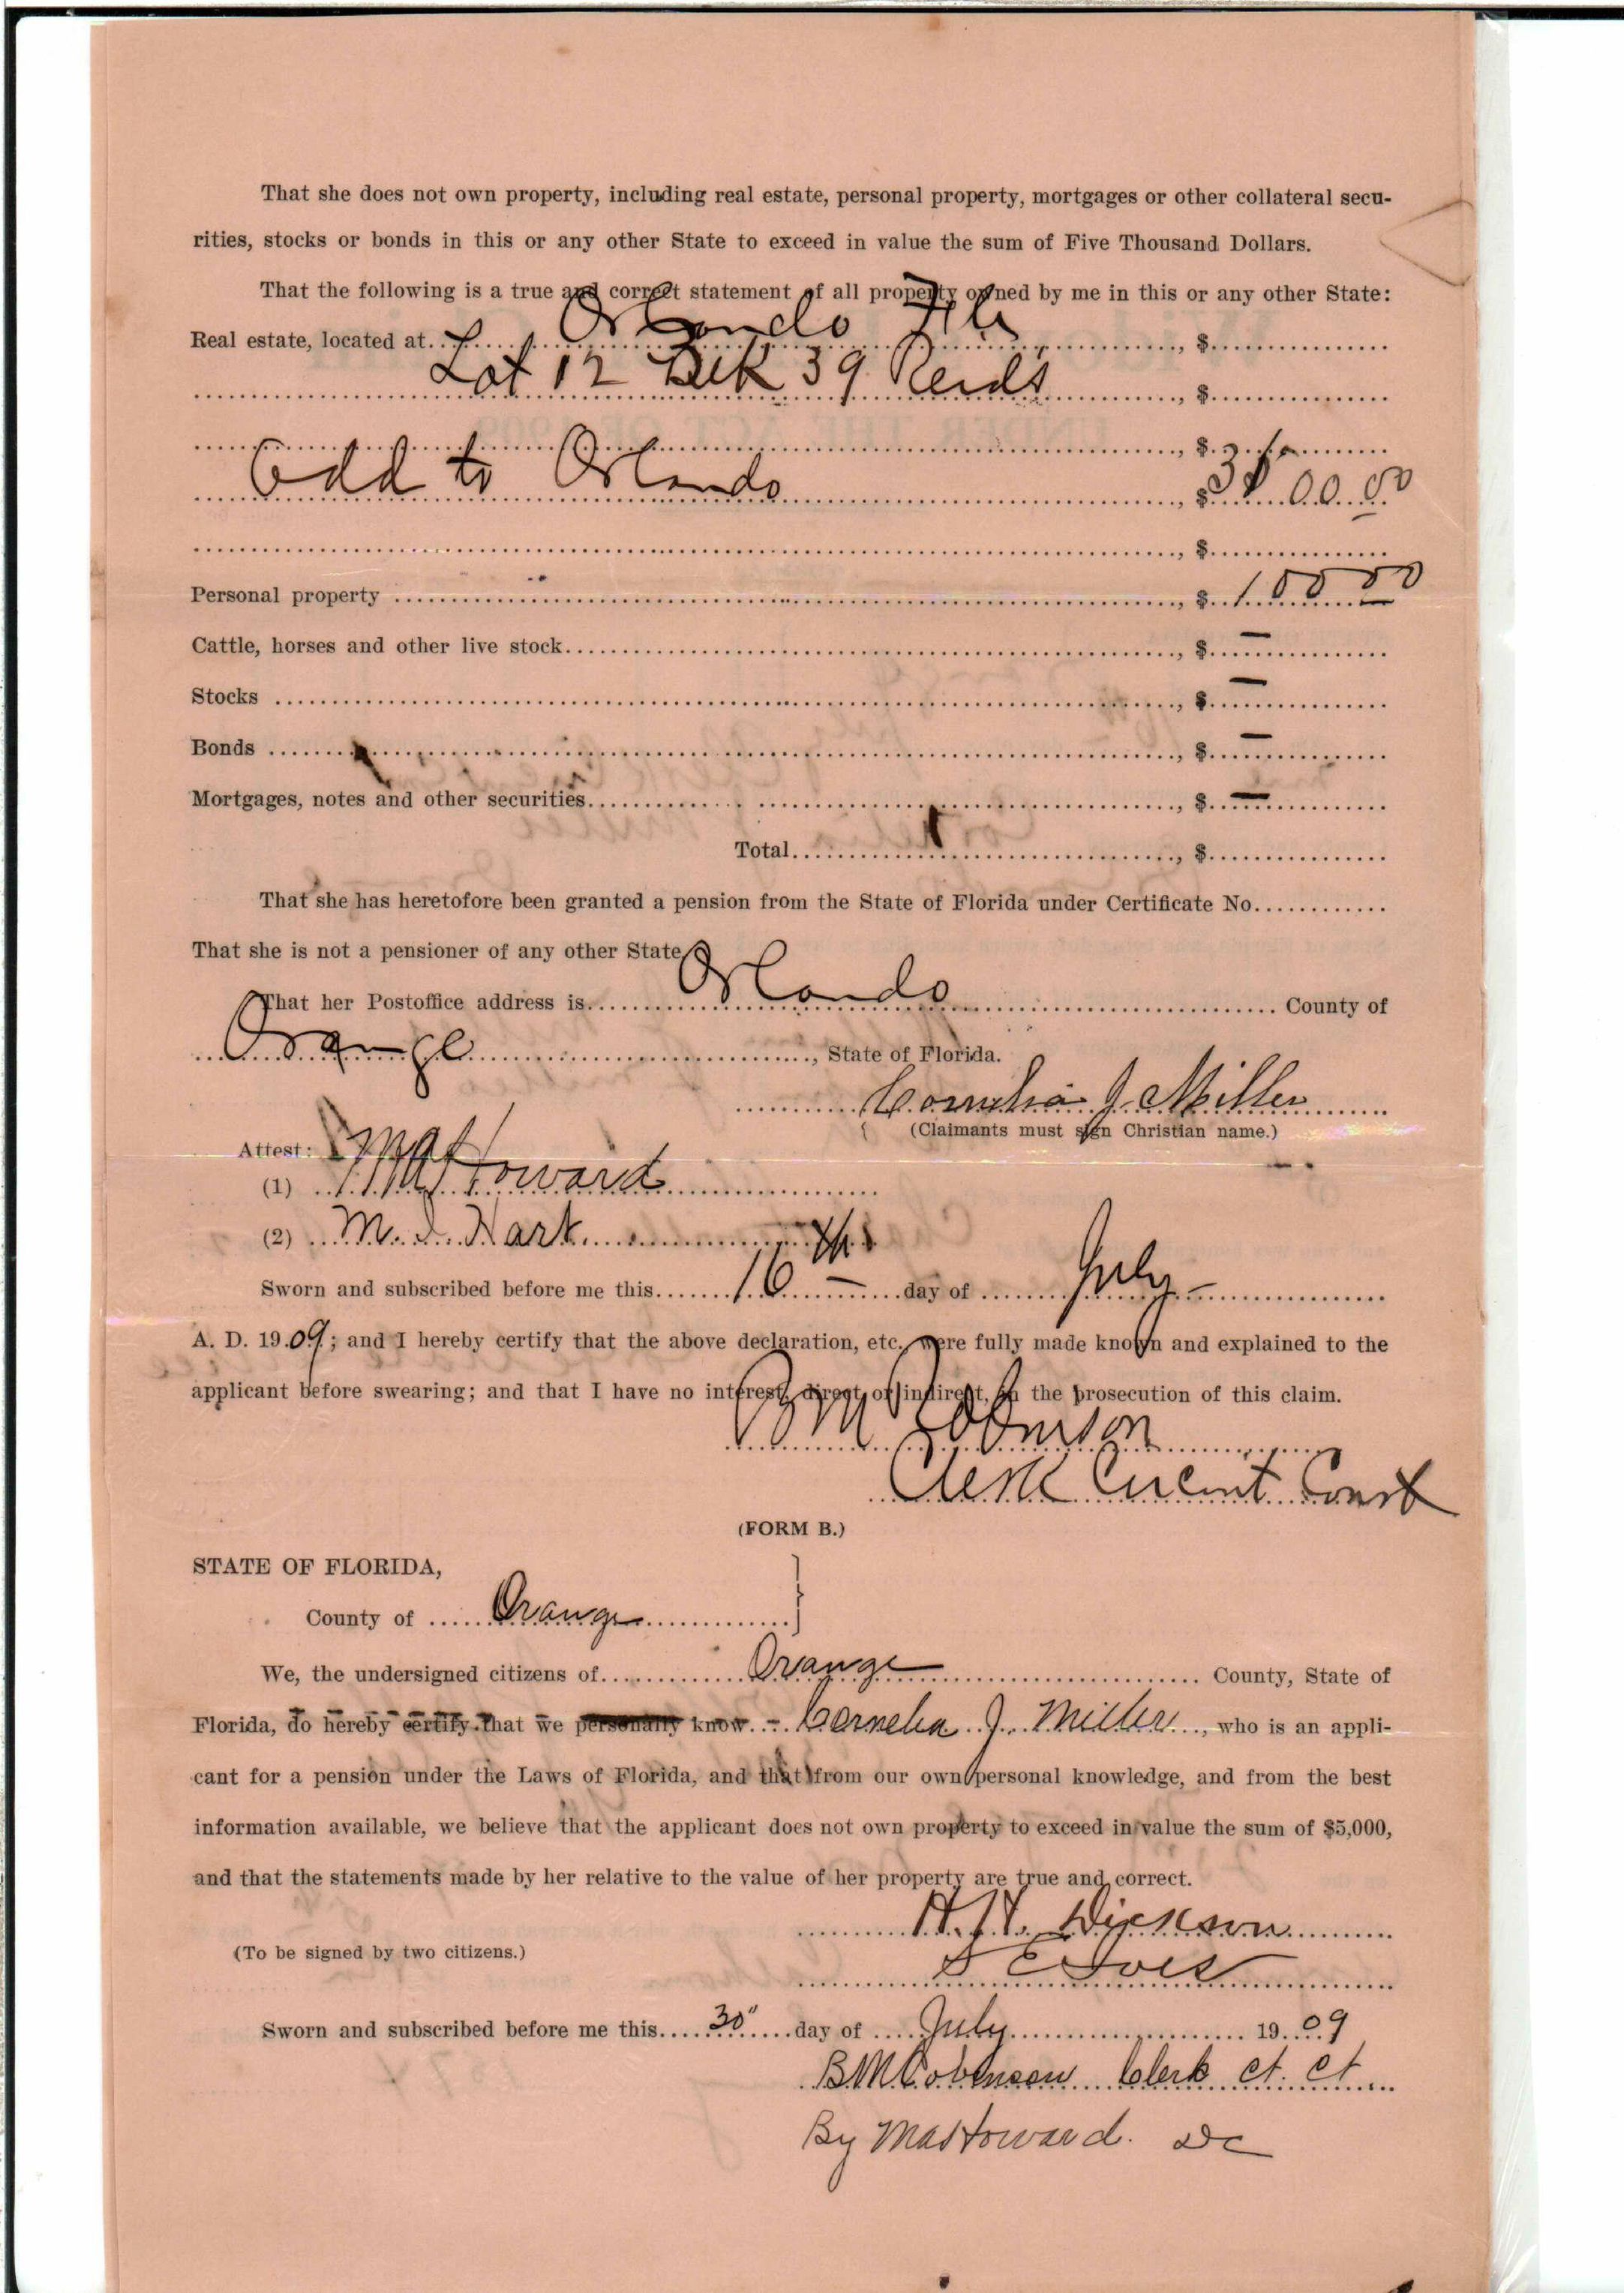 That she does not own property, including real estate, personal property, mortgages or other collateral secu-
rities, stocks or bonds in this or any other State to exceed in value the sum of Five Thousand Dollars.
That the following is a true and correct statement of all property owned by me in this or any other State:
Real estate, located at Orlando Fla, $
Lot 12 Blk 39 Reid's, $
, $
Add to Orlando, $ 00.00
, $
Personal property, $ 100 00
Cattle, horses and other live stock, $ —
Stocks, $ —
Bonds, $ —
Mortgages, notes and other securities, $ —
Total, $
That she has heretofore been granted a pension from the State of Florida under Certificate No.
That she is not a pensioner of any other State
That her Postoffice address is Orlando County of
Orange, State of Florida.
Cornelia J. Miller
(Claimants must sign Christian name.)
Attest:
(1) M A Howard
(2) M. I. Hart
Sworn and subscribed before me this 16th day of July
A. D. 1909; and I hereby certify that the above declaration, etc., were fully made known and explained to the
applicant before swearing; and that I have no interest, direct or indirect, in the prosecution of this claim.
B M Robinson
Clerk Circuit Court
(FORM B.)
STATE OF FLORIDA,
County of Orange
We, the undersigned citizens of Orange County, State of
Florida, do hereby certify that we personally know Cornelia J. Miller, who is an appli-
cant for a pension under the Laws of Florida, and that from our own personal knowledge, and from the best
information available, we believe that the applicant does not own property to exceed in value the sum of $5,000,
and that the statements made by her relative to the value of her property are true and correct.
H. H. Dickson
(To be signed by two citizens.)
S E Ives
Sworn and subscribed before me this 30" day of July 1909
B M Robinson Clerk Ct. Ct.
By M A Howard. DC